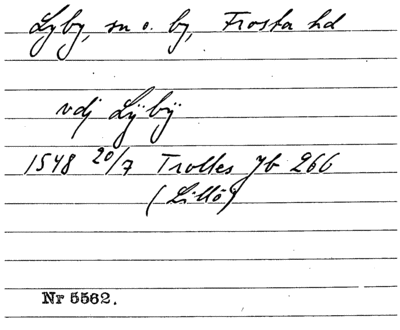 Lyby, sn o. by, Frosta hd
vdj Lÿbÿ
1548 20/7 Trolles Jb 266
(Lillö)
Nr 5562.